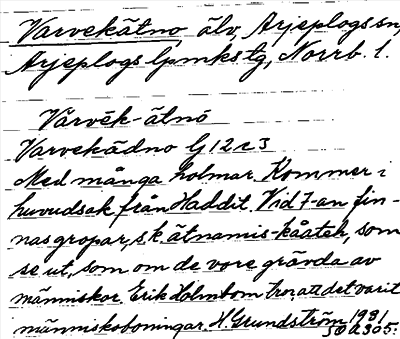 Varvekätno älv, Arjeplogs sn,
Arjeplogs lpmkstg, Norrb. l.
Várvēk-ätnō
Varvekädno G 12 c 3
Med många holmar. Kommer i
huvudsak från Haddit. Vid 7-an fin-
nas gropar, s.k. ätnamis-kåateh, som
se ut, som om de vore grävda av
människor. Erik Holmbom tror, att det varit
människoboningar. H. Grundström 1981
SOA 305.